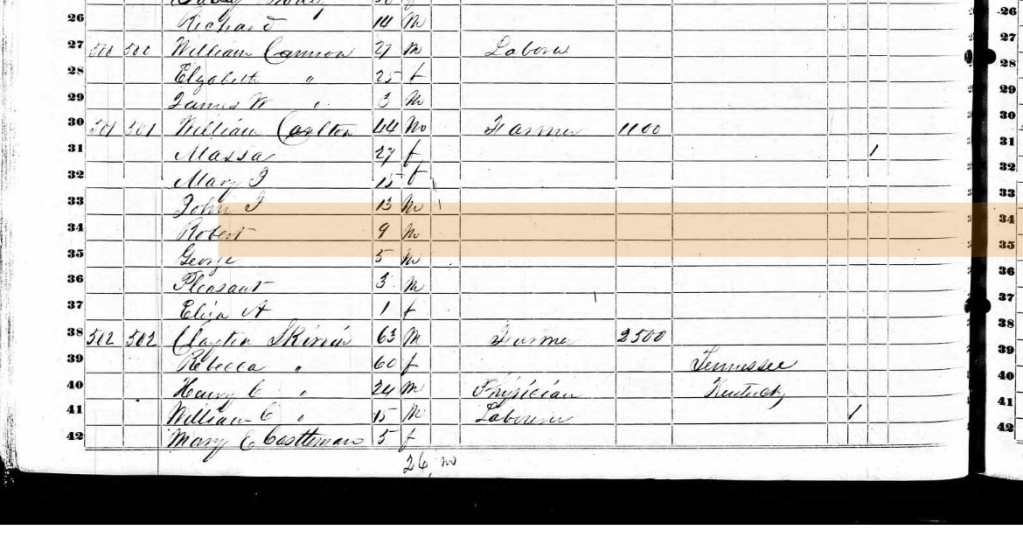 26 Richard 14 M 26
27 500 500 William Cannon 27 M Laborer 27
28 Elizabeth " 25 f 28
29 James W " 3 M 29
30 501 501 William Carlton 44 M Farmer 1100 30
31 Massa 27 f 1 31
32 Mary J 15 f 32
33 John J 13 M 33
34 Robert 9 M 34
35 George 5 M 35
36 Pleasant 3 M 36
37 Eliza A 1 f 37
38 502 502 Clayton 63 M Farmer 2500 38
39 Rebecca " 60 f Tennessee 39
40 Henry C " 24 M Physician Kentucky 40
41 William C " 15 M Laborer 1 41
42 Mary C Castleman 5 f 42
26 m